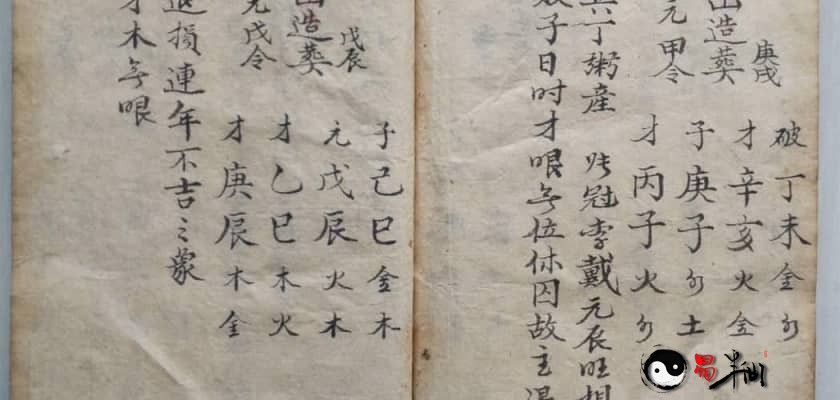 破丁未金水
庚戌
才辛亥火金
山造葬
子庚子水土
元甲令
才丙子火水
丁粥産 张冠李戴元辰旺相
子日时才眼無位休囚故主
子己巳金木
戊辰
元戊辰火木
山造葬
才乙巳木火
元戊令
才庚辰木金
退損連年不吉之蒙
才木無眼
易半仙